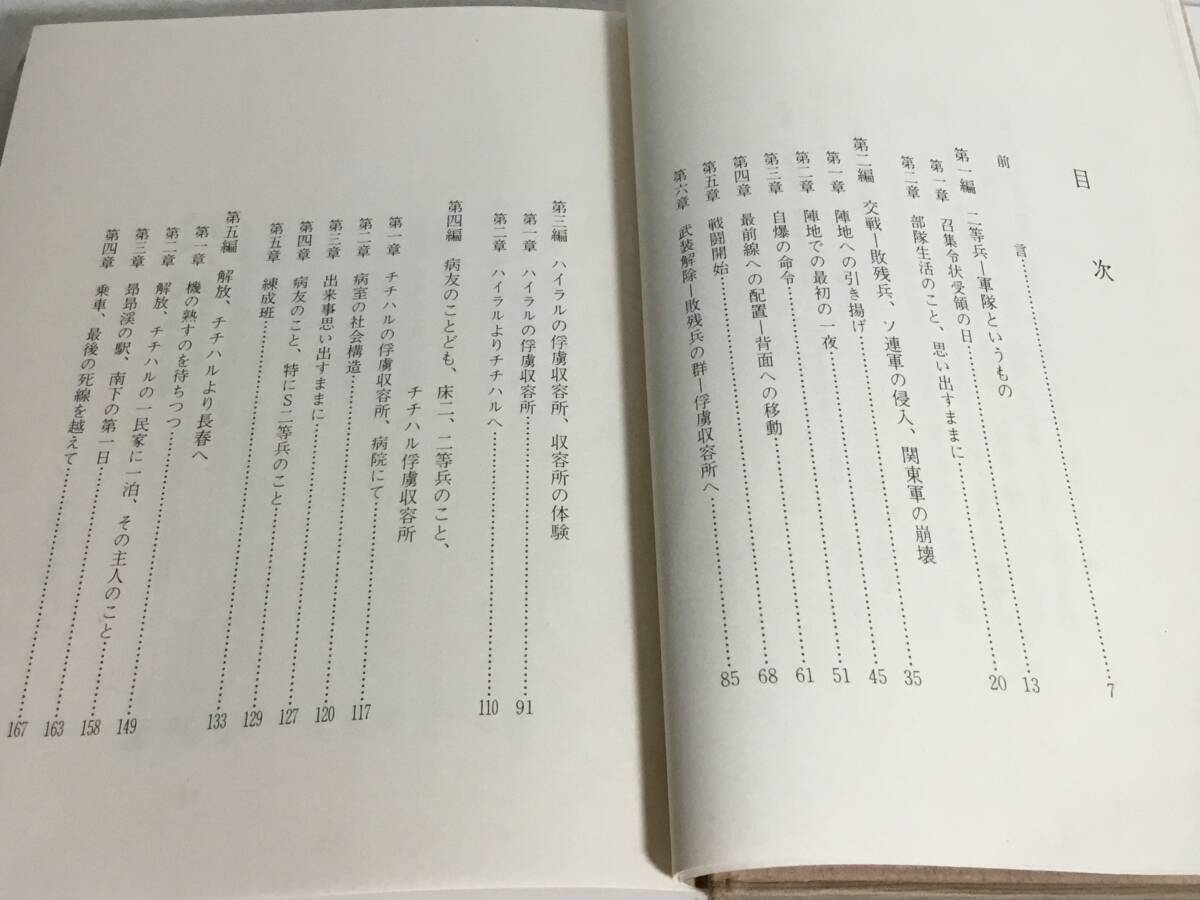 目次
前言……………7
第一編 二等兵―軍隊というもの
第一章 召集令状受領の日……………13
第二章 部隊生活のこと、思い出すままに……………20
第二編 交戦―敗残兵、ソ連軍の侵入、関東軍の崩壊
第一章 陣地への引き揚げ……………35
第二章 陣地での最初の一夜……………45
第三章 自爆の命令……………51
第四章 最前線への配置―背面への移動……………61
第五章 戦闘開始……………68
第六章 武装解除―敗残兵の群―俘虜収容所へ……………85
第三編 ハイラルの俘虜収容所、収容所の体験
第一章 ハイラルの俘虜収容所……………91
第二章 ハイラルよりチチハルへ……………110
第四編 病友のことども、床二、二等兵のこと、
チチハル俘虜収容所
第一章 チチハルの俘虜収容所、病院にて……………117
第二章 病室の社会構造……………120
第三章 出来事思い出すままに……………127
第四章 病友のこと、特にS二等兵のこと……………129
第五章 練成班……………133
第五編 解放、チチハルより長春へ
第一章 機の熟すのを待ちつつ……………149
第二章 解放、チチハルの一民家に一泊、その主人のこと……………158
第三章 昻昻渓の駅、南下の第一日……………163
第四章 乗車、最後の死線を越えて……………167